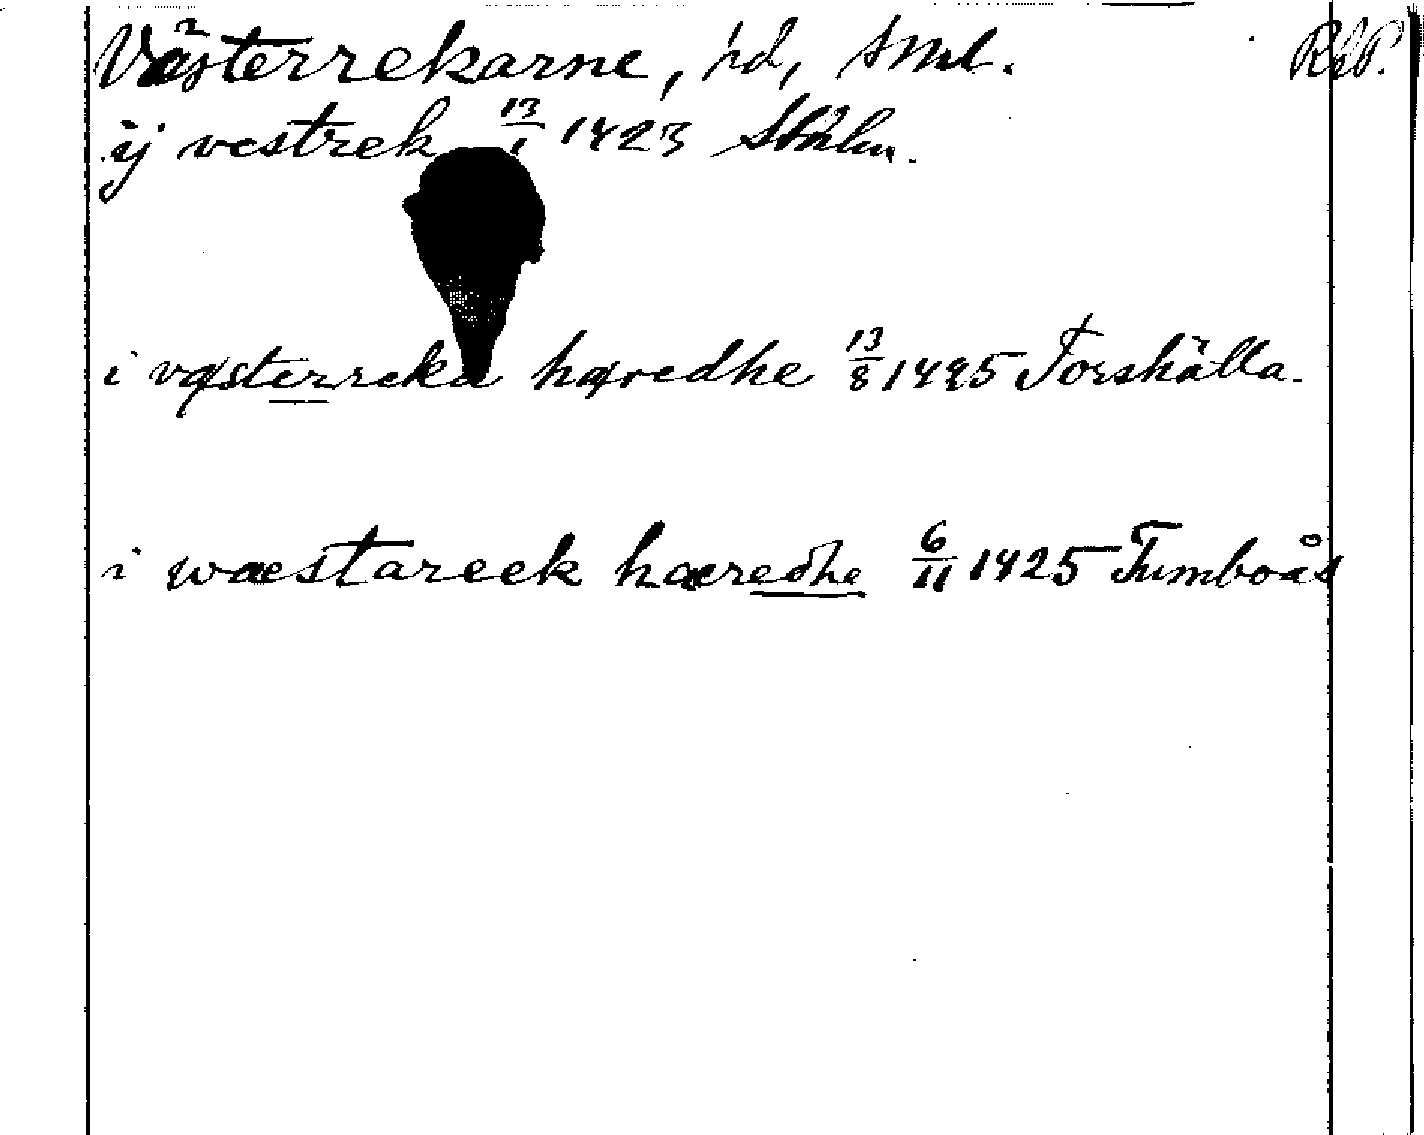 Västerrekarne, hd, Sml. RAP.
ij vestrek 13/1 1423 Sthlm.
i væsterreka hæredhe 13/8 1425 Torshälla.
i wæstareek hæredhe 6/11 1425 Tumboås